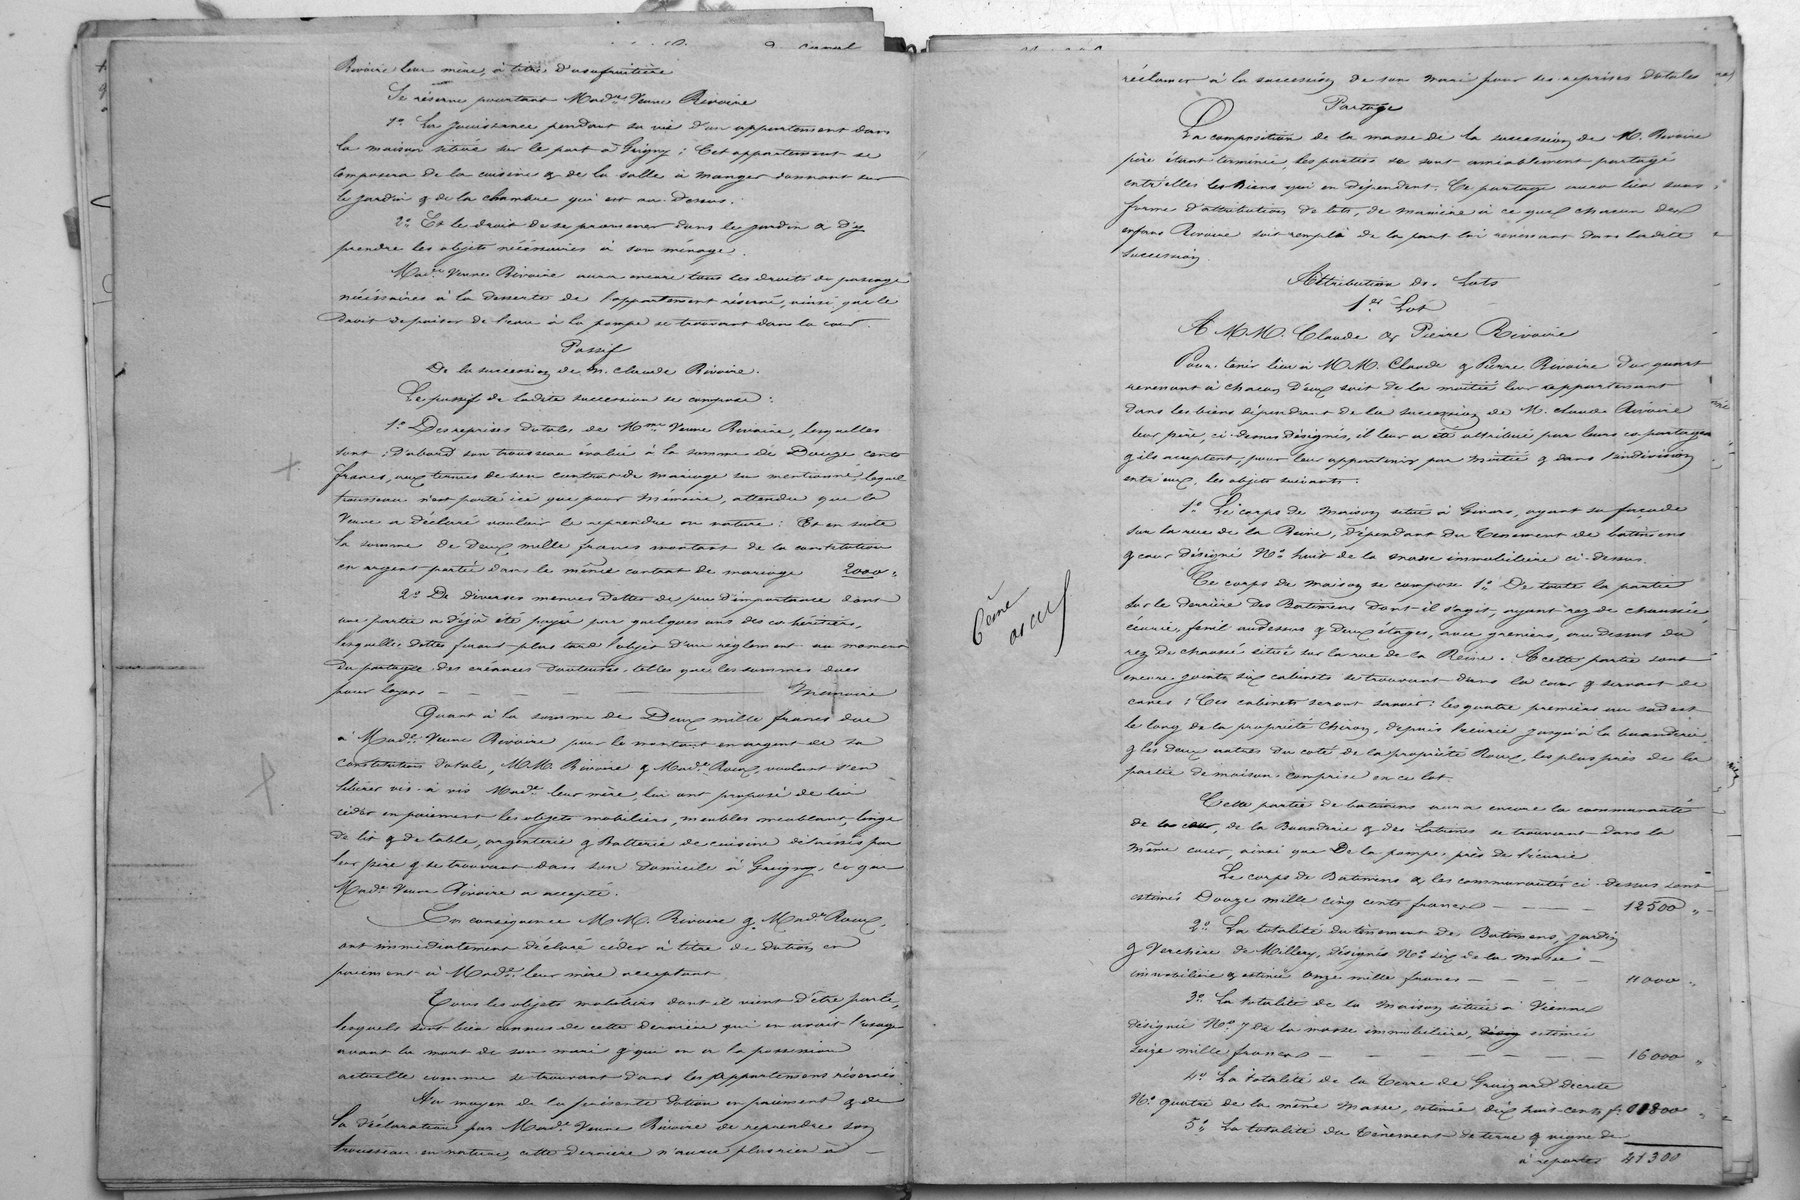 Rivoire leur mère, à titre d'usufruitière
Se réserve pourtant Made Veuve Rivoire
1o La jouissance pendant sa vie d'un appartement dans
la maison située sur le port à Grigny ; Cet appartement se
composera de la cuisine & de la salle à manger donnant sur
le jardin & de la chambre qui est au-dessus.
2o Et le droit de se promener dans le jardin & d'y
prendre les objets nécessaires à son ménage.
Made Veuve Rivoire aura encore tous les droits de passage
nécessaires à la desserte de l'appartement réservé, ainsi que le
droit de puiser de l'eau à la pompe se trouvant dans la cour.
Passif
De la succession de M. Claude Rivoire.
Le passif de ladite succession se compose :
1o Des reprises dotales de Mme Veuve Rivoire, lesquelles
sont : d'abord son trousseau évalué à la somme de Douze cents
francs, aux termes de son contrat de mariage su mentionné, lequel
trousseau n'est porté ici que pour mémoire, attendu que la
Veuve a déclaré vouloir le reprendre en nature : Et en suite
la somme de Deux mille francs montant de la constitution
en argent portée dans le même contrat de mariage 2000 "
2o De diverses menues dettes de peu d'importance dont
une partie a déjà été payée par quelques uns des co-héritiers,
lesquelles dettes feront plus tard l'objet d'un règlement au moment
du partage des créances douteuses telles que les sommes dues
pour loyers — — — — — Memoire
Quant à la somme de Deux mille francs due
à Made Veuve Rivoire pour le montant en argent de sa
constitution dotale, MM. Rivoire & Made Roux, voulant s'en
libérer vis à vis Made leur mère, lui ont proposé de leur
céder en paiement les objets mobiliers, meubles meublant, linge
de lit & de table, argenterie & Batterie de cuisine délaissés par
leur père & se trouvant dans son domicile à Grigny, ce que
Made Veuve Rivoire a accepté.
En conséquence MM. Rivoire & Made Roux,
ont immédiatement déclaré céder à titre de dation en
paiement à Made leur mère acceptant,
Tous les objets mobiliers dont il vient d'être parlé,
lesquels sont bien connus de cette dernière qui en avait l'usage
avant la mort de son mari & qui en a la possession
actuelle comme se trouvant dans les appartemens réservés.
Au moyen de la présente dation en paiement & de
la déclaration par Made Veuve Rivoire de reprendre son
trousseau en nature, cette dernière n'aura plus rien à —
réclamer à la succession de son mari pour ses reprises dotales
Partage
La composition de la masse de la succession de M. Rivoire
père étant terminée, les parties se sont amiablement partagé
entr'elles les biens qui en dépendent. Ce partage aura lieu sous
forme d'attribution de lots, de manière à ce que chacun des
enfans Rivoire soit rempli de la part lui revenant dans ladite
succession
Attribution de Lots
1er Lot
A MM. Claude & Pierre Rivoire
Pour tenir lieu à MM. Claude & Pierre Rivoire du quart
revenant à chacun d'eux soit de la moitié leur appartenant
dans les biens dépendant de la succession de M. Claude Rivoire
leur père, ci-dessus désignés, il leur a été attribué par leurs copartagés
& ils acceptent, pour leur appartenir par moitié & dans l'indivision
entr'eux, les objets suivants.
1o Le corps de maison situé à Givors, ayant sa façade
sur la rue de la Reine, dépendant du Tenement de batimens
& cour désigné No huit de la masse immobilière ci-dessus.
Ce corps de maison se compose 1o De toute la partie
sur le derrière des Batimens dont il s'agit, ayant rez de chaussée,
écurie, fenil au dessus & deux étages, avec greniers, au dessus du
rez de chaussé situé sur la rue de la Reine. A cette partie sont
encore joints six cabinets se trouvant dans la cour & servant de
caves ; Ces cabinets seront savoir : les quatre premiers au sud est
le long de la propriété Chiron, depuis l'écurie jusqu'à la buanderie
& les deux autres du coté de la propriété Roux, les plus près de la
partie de maison comprise en ce lot.
Cette partie de batimens aura encore la communauté
de la cour, de la Buanderie & des Latrines se trouvant dans la
même cour, ainsi que De la pompe près de l'écurie
Le corps de Batimens & les communautés ci-dessus sont
estimés Douze mille cinq cents francs — — — — 12500 "
2o La totalité du tènement de Batimens, jardin
& Verchère de Millery, désignés No six de la masse —
immobilière & estimé Onze mille francs — — — 11000 "
3o La totalité de la Maison située à Vienne
désignée No 7 de la masse immobilière, estimée
seize mille francs — — — — — — 16000 "
4o La totalité de la Terre de Graizard décrite
No quatre de la même Masse, estimée dix huit cents f. 1800 "
5o La totalité du Tènement de terre & vigne de
à reporter 41300
6ème